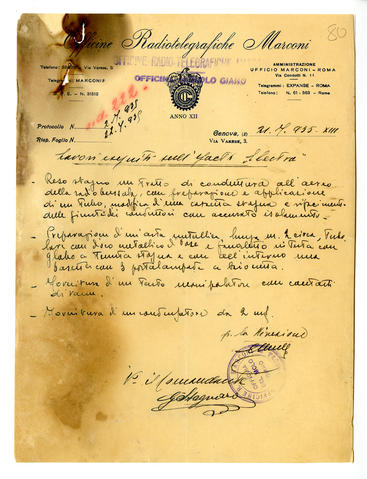 80
Officine Radiotelegrafiche Marconi
OFFICINE RADIO-TELEGRAFICHE
OFFICINA MOLO GIANO
GENOVA
Via Varese, 3
Telegrammi: MARCONI
AMMINISTRAZIONE
UFFICIO MARCONI - ROMA
Via Condotti N. 11
Telegrammi: EXPANSE - ROMA
Telefono: N. 61-563 - ROMA
ANNO XII
Protocollo N.
Risp. Foglio N.
22.7.935
Genova, (2) 21.7.935-XIII
Via Varese, 3
Lavori eseguiti sull'Yacht Elettra
- Reso stagno un tratto di conduttura all'aereo
della radiobussola, con preparazione e applicazione
di un tubo, modifica d'una cassetta stagna e rifacimento
delle giunte dei conduttori con accurato isolamento.
- Preparazione d'un'asta metallica lunga m. 2 circa, tubo
lare con disco metallico di base e fanalino in testa con
globo a tenuta stagna e con all'interno una
basetta con 3 portalampade a baionetta.
- Fornitura di un tasto manipolatore con contatti
di
- Fornitura d'un condensatore da 2 mf.
p. la Direzione
V° il Comandante